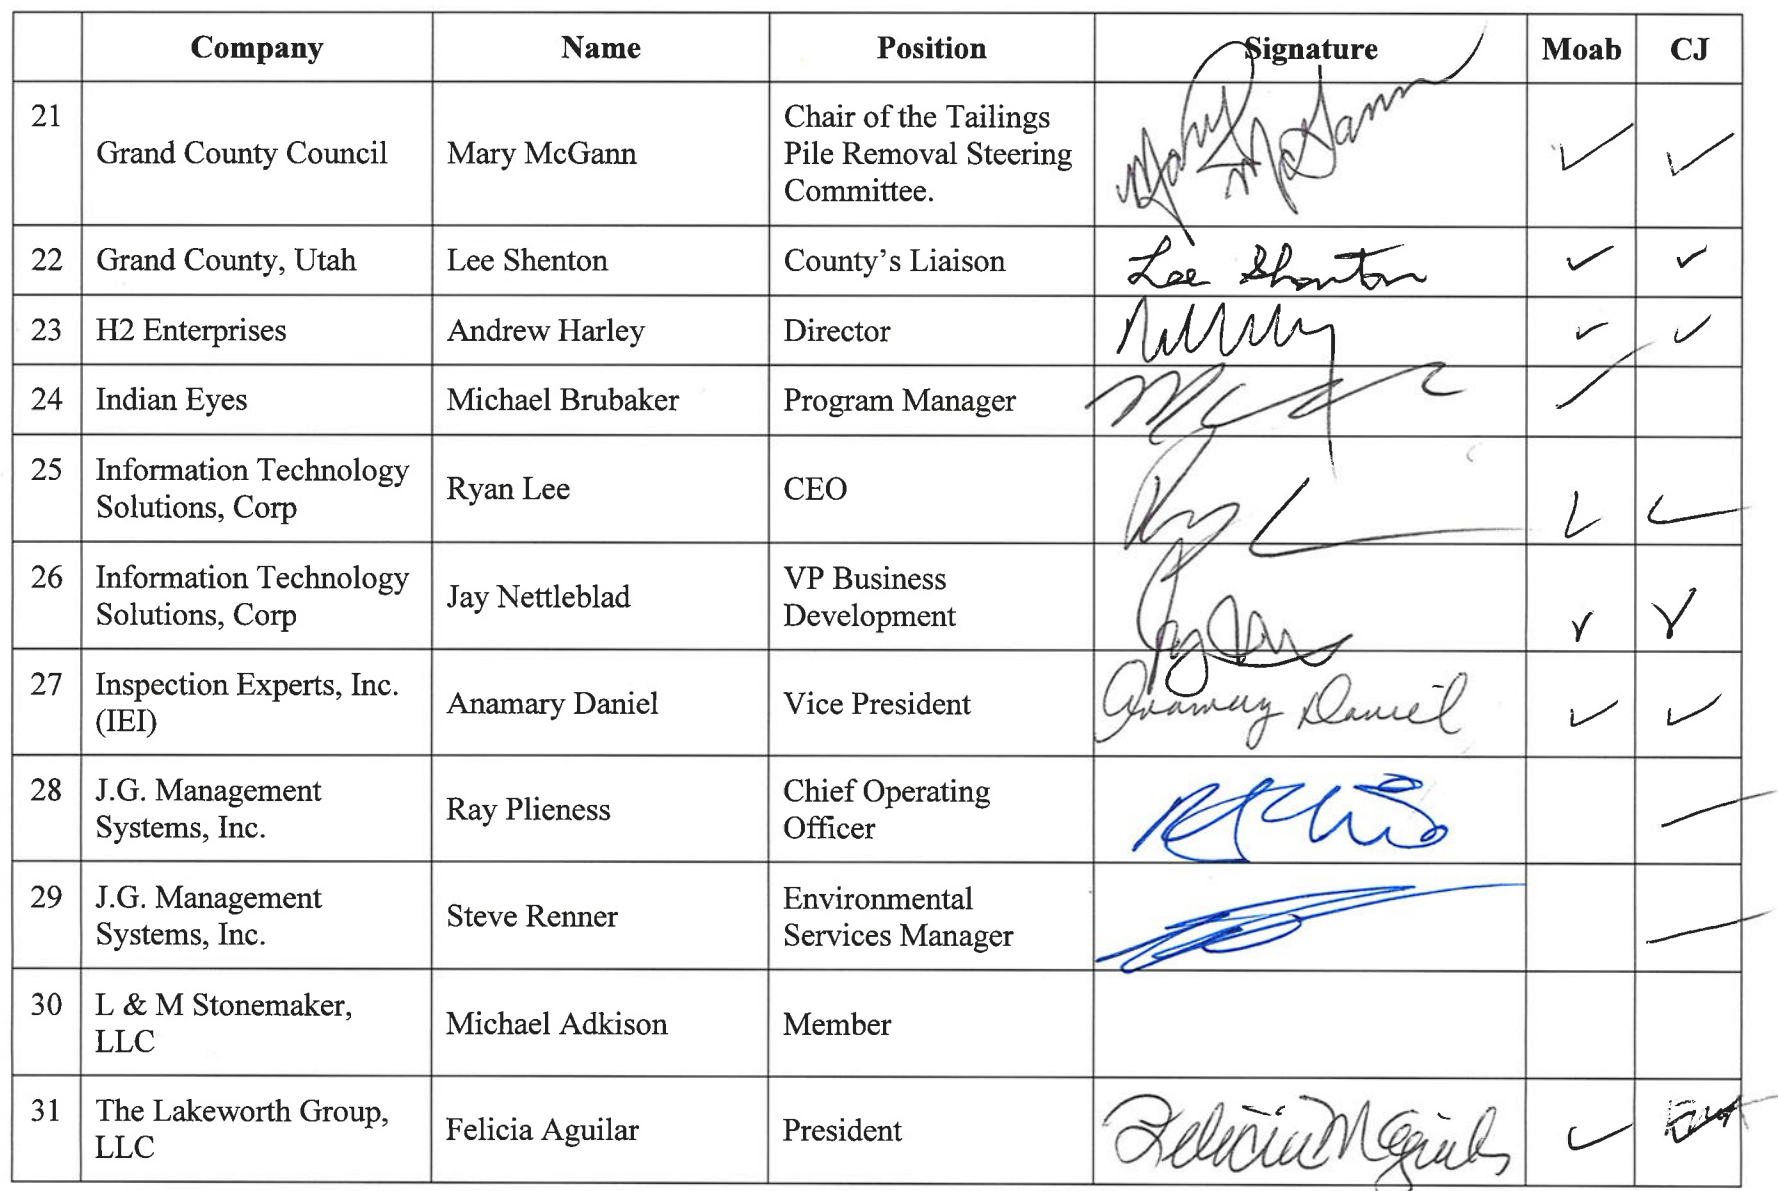 Company Name Position Signature Moab CJ
21 Grand County Council Mary McGann Chair of the Tailings
Pile Removal Steering
Committee. Mary McGann ✓ ✓
22 Grand County, Utah Lee Shenton County's Liaison Lee Shenton ✓ ✓
23 H2 Enterprises Andrew Harley Director ✓ ✓
24 Indian Eyes Michael Brubaker Program Manager
25 Information Technology
Solutions, Corp Ryan Lee CEO ✓ ✓
26 Information Technology
Solutions, Corp Jay Nettleblad VP Business
Development ✓ ✓
27 Inspection Experts, Inc.
(IEI) Anamary Daniel Vice President Anamary Daniel ✓ ✓
28 J.G. Management
Systems, Inc. Ray Plieness Chief Operating
Officer
29 J.G. Management
Systems, Inc. Steve Renner Environmental
Services Manager
30 L & M Stonemaker,
LLC Michael Adkison Member
31 The Lakeworth Group,
LLC Felicia Aguilar President Felicia M Aguilar ✓